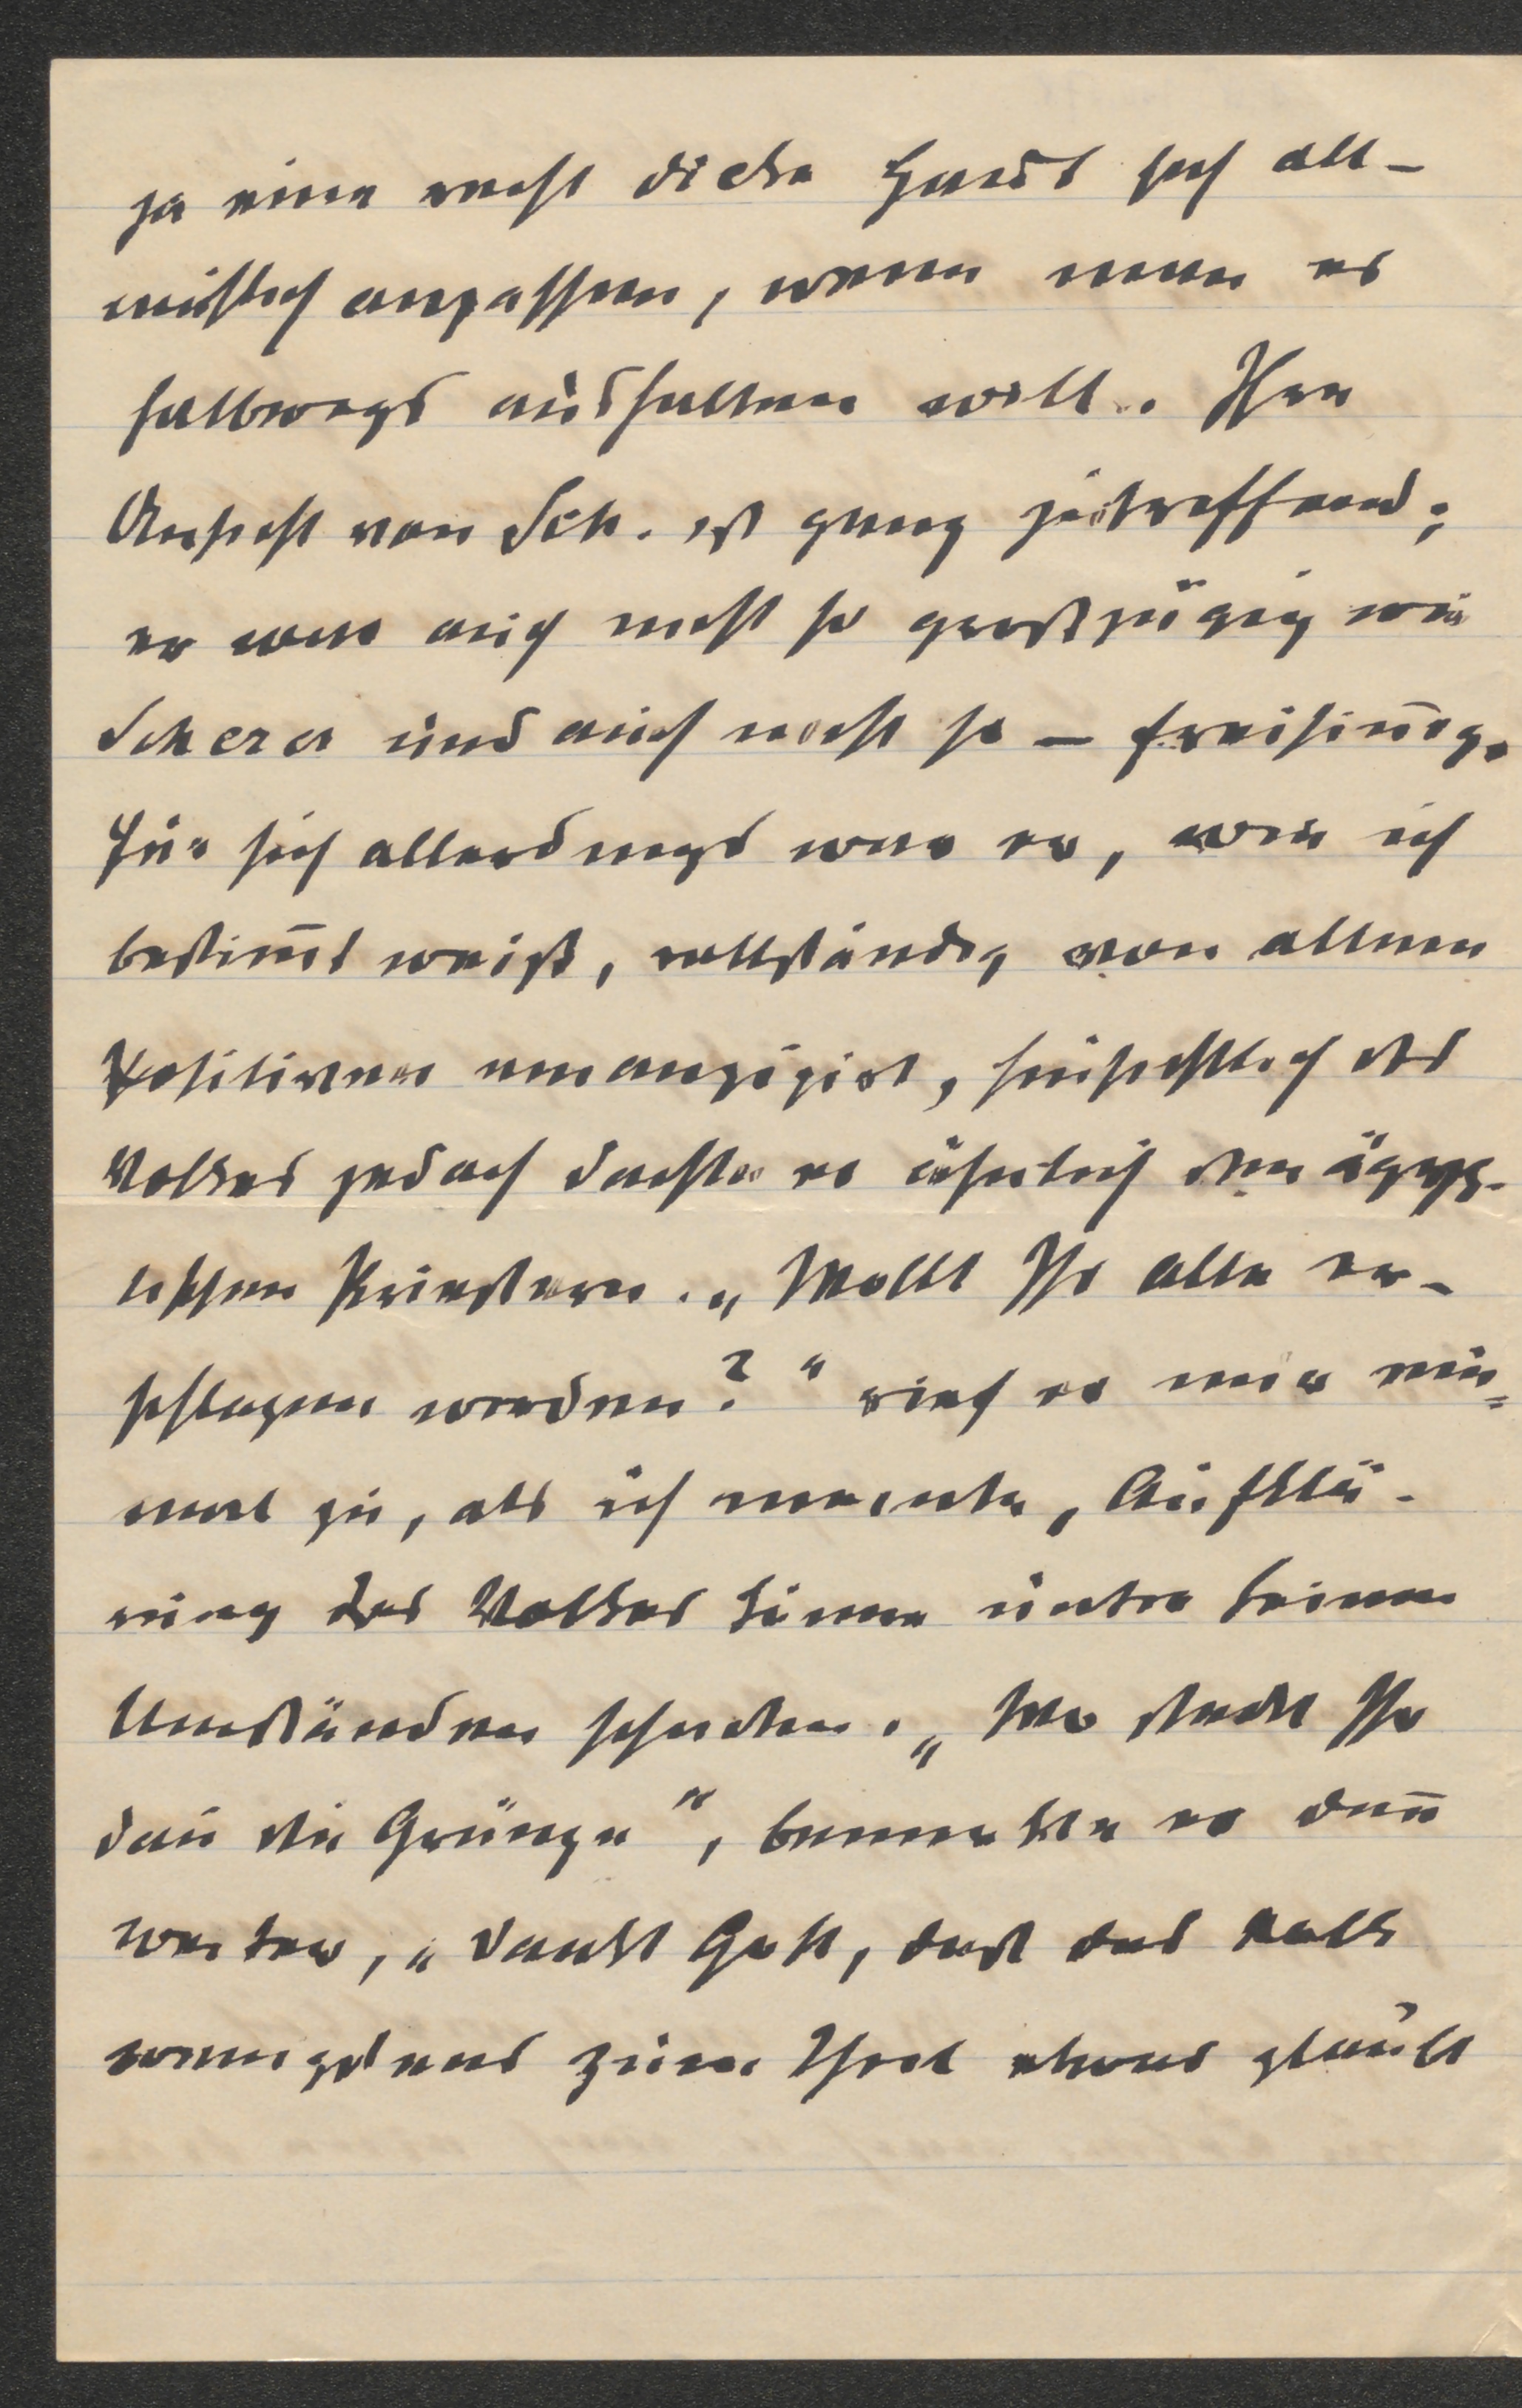 ja eine recht dicke Haut sich all-
mählich anpassen, wenn man es
halbwegs aushalten will. Ihre
Ansicht von Sch. ist ganz zutreffend;
er war auch nicht so großzügig wie
Scherer und auch nicht so — freisin̄ig.
Für sich allerdings war er, wie ich
bestim̄t weiß, vollständig von allem
Positiven emanzipirt, hinsichtlich des
Volkes jedoch dachte er ähnlich den ägyp-
tischen Priestern. „Wollt Ihr alle er-
schlagen werden?“ rief er mir ein-
mal zu, als ich meinte, Aufklä-
rung des Volkes könne unter keinen
Umständen schaden. „Wo steckt Ihr
dan̄ die Grenze“, bemerkte er dan̄
weiter, „dankt Gott, daß das Volk
wenigstens zum Theil etwas glaubt